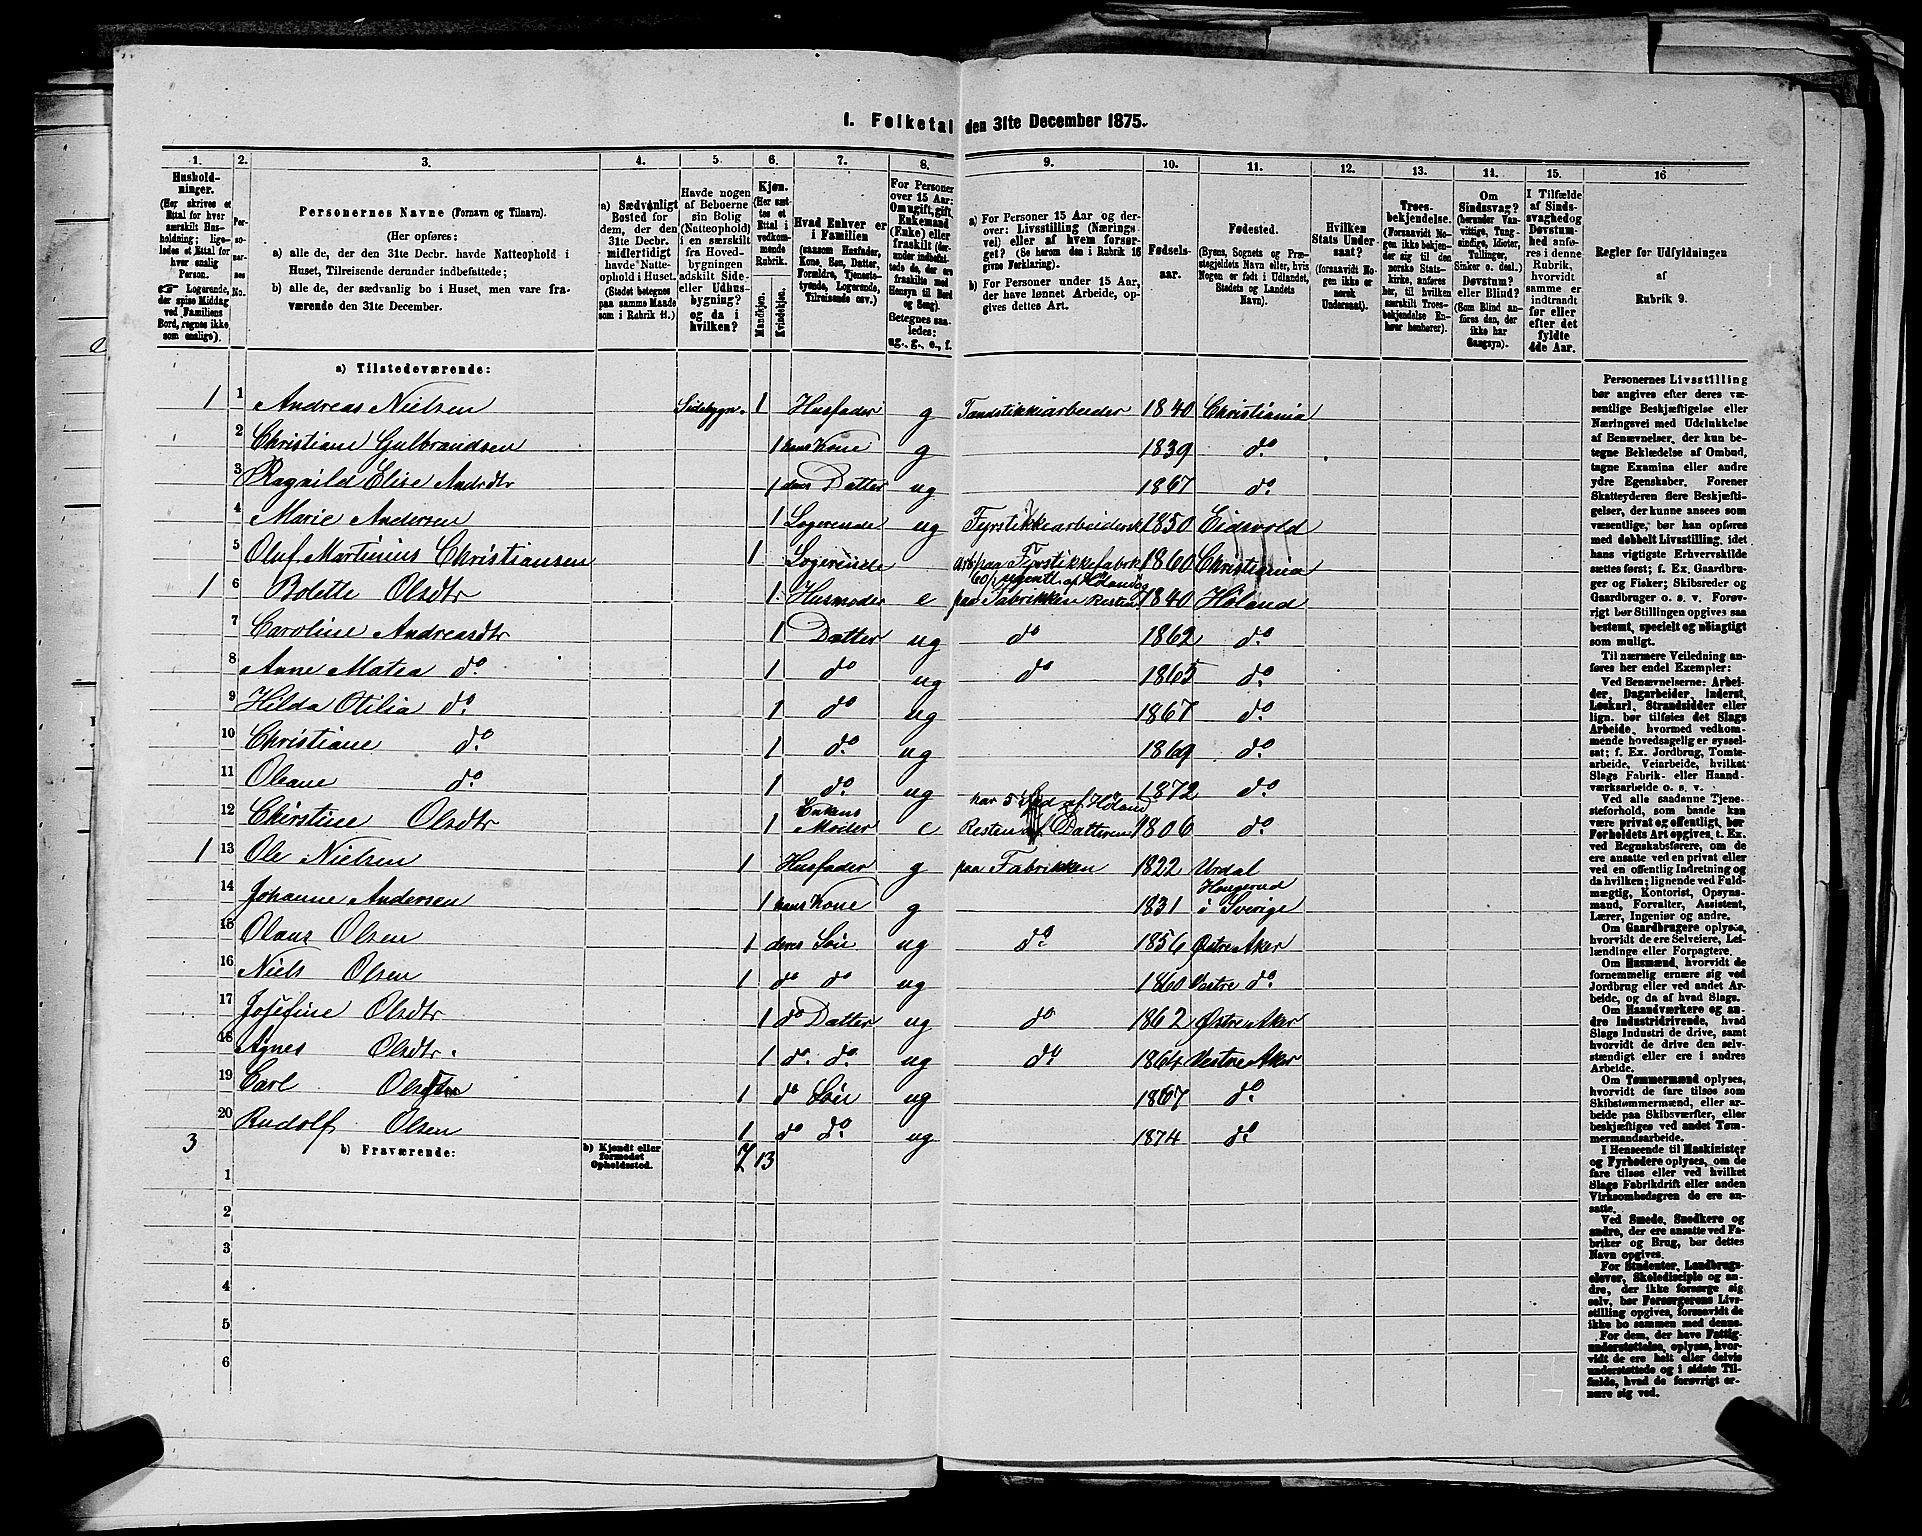 I. Folketal den 31te December 1875.
1. 2. 3. 4. 5. 6. 7. 8. 9. 10. 11. 12. 13. 14. 15. 16
Hushold-
ninger.
(Her skrives et
Ettal for hver
særskilt Hus-
holdning; lige-
ledes et Ettal for
hver enslig
Person.
☞ Logerende,
der spise Middag
ved Familiens
Bord, regnes ikke
som enslige).
Per-
so-
ner-
nes
No.
Personernes Navne (Fornavn og Tilnavn).
(Her opføres:
a) alle de, der den 31te Decbr. havde Natteophold i
Huset, Tilreisende derunder indbefattede;
b) alle de, der sædvanlig bo i Huset, men vare fra-
værende den 31te December.
a) Sædvanligt
Bosted for
dem, der den
31te Decbr.
midlertidigt
havde Natte-
ophold i Huset.
(Stedet betegnes
paa samme Maade
som i Rubrik 11.)
Havde nogen
af Beboerne
sin Bolig
(Natteophold)
i en særskilt
fra Hoved-
bygningen
adskilt Side-
eller Udhus-
bygning?
og da i
hvilken?
Kjøn.
(Her sæt-
tes et
Ettal i
vedkom-
mende
Rubrik.
Mandkjøn.
Kvindekjøn.
Hvad Enhver er
i Familien
(saasom Husfader,
Kone, Søn, Datter,
Forældre, Tjeneste-
tyende, Logerende,
Tilreisende osv.)
For Personer
over 15 Aar:
Om ugift, gift,
Enkemand
(Enke) eller
fraskilt (der-
under indbefat-
tede de, der ere
fraskilte med
Hensyn til Bord
og Seng).
Betegnes saa-
ledes:
ug., g., e., f.
a) For Personer 15 Aar og der-
over: Livsstilling (Nærings-
vei) eller af hvem forsør-
get? (Se herom den i Rubrik 16
givne Forklaring).
b) For Personer under 15 Aar,
der have lønnet Arbeide, op-
gives dettes Art.
Fødsels-
aar.
Fødested.
(Byens, Sognets og Præ-
stegjeldets Navn eller, hvis
Nogen er født i Udlandet,
Stedets og Landets
Navn).
Hvilken
Stats Under-
saat?
(forsaavidt No-
gen ikke er
norsk
Undersaat).
Troes-
bekjendelse.
(Forsaavidt No-
gen ikke bekjen-
der sig til den
norske Stats-
kirke, anføres
her, til hvilken
særskilt Troes-
bekjendelse En-
hver henhører).
Om
Sindssvag?
(herunder Van-
vittige, Tung-
sindige, Idioter,
Tullinger,
Sinker o. desl.)
Døvstum?
eller Blind?
(Som Blind an-
føres den, der
ikke har
Gangsyn).
I Tilfælde
af Sinds-
svaghed og
Døvstum-
hed anfø-
res i denne
Rubrik,
hvorvidt
samme er
indtraadt
før eller
efter det
fyldte
4de Aar.
Regler for Udfyldningen
af
Rubrik 9.
a) Tilstedeværende:
1 1 Andreas Nielsen Sidebygn. 1 Husfader g Tandstikkiarbeider 1840 Christiania
2 Christiane Gulbrandsen 1 hans Kone g 1839 do.
3 Ragnild Elise Andrdtr 1 deres Datter ug 1867 do.
4 Marie Andersen 1 Logerende ug Fyrstikkiarbeidersk 1850 Eidsvold
5 Oluf Martinius Christiansen 1 Logerende arb. paa Fyrstikkefabrk 1860 Christiania
1 6 Bolette Olsdtr 1 Husmoder e paa Fabrikken Resten 1840 Høland
7 Caroline Andreasdtr 1 Datter ug do 1862 do.
8 Anne Matea do. 1 do ug do 1865 do.
9 Hilda Otilia do. 1 do ug 1867 do.
10 Christiane do. 1 do. ug 1869 do.
11 Oleane do. 1 do. ug 1872 do.
12 Chirstine Olsdtr 1 Enkens Moder e har 5 af Høland Resten af Datteren 1806 do.
1 13 Ole Nielsen 1 Husfader g paa Fabrikken 1822 Urdal
14 Johanne Andersen 1 hans Kone g 1831 Haugerud i Sverige
15 Olaus Olsen 1 deres Søn ug do. 1856 Østre Aker
16 Niels Olsen 1 do do ug 1860 Vestre do.
17 Josefine Olsdtr 1 do Datter ug do 1862 Østre Aker
18 Agnes Olsdtr. 1 do. do. ug do. 1864 Vestre Aker
19 Carl Olsen 1 do Søn ug 1867 do
20 Rudolf Olsen 1 do do. ug 1874 do.
3 7 13
b) Fraværende:
b) Kjendt eller
formodet
Opholdssted.
1
2
3
4
5
6
Personernes Livsstilling
bør angives efter deres væ-
sentlige Beskjæftigelse eller
Næringsvei med Udelukkelse
af Benævnelser, der kun be-
tegne Beklædelse af Ombud,
tagne Examina eller andre
ydre Egenskaber. Forener
Skatteyderen flere Beskjæfti-
gelser, der kunne ansees som
væsentlige, bør han opføres
med dobbelt Livsstilling, idet
hans vigtigste Erhvervskilde
sættes først; f. Ex. Gaardbru-
ger og Fisker; Skibsreder og
Gaardbruger o. s. v. Forøv-
rigt bør Stillingen opgives saa
bestemt, specielt og nøiagtigt
som muligt.
Til nærmere Veiledning an-
føres her endel Exempler:
Ved Benævnelserne: Arbei-
der, Dagarbeider, Inderst,
Løskarl, Strandsidder eller
lign. bør tilføies det Slags
Arbeide, hvormed vedkom-
mende hovedsagelig er syssel-
sat; f. Ex. Jordbrug, Tomte-
arbeide, Veiarbeide, hvilket
Slags Fabrik- eller Haand-
værksarbeide o. s. v.
Ved alle saadanne Tjene-
steforhold, som baade kan
være privat og offentligt, bør
Forholdets Art opgives, t. Ex.
ved Regnskabsførere, om de
ere ansatte ved en privat eller
ved en offentlig Indretning og
da hvilken; lignende ved Fuld-
mægtig, Kontorist, Opsyns-
mand, Forvalter, Assistent,
Lærer, Ingeniør og andre.
Om Gaardbrugere oplyses,
hvorvidt de ere Selveiere, Lei-
lændinge eller Forpagtere.
Om Husmænd, hvorvidt de
fornemmelig ernære sig ved
Jordbrug eller ved andet Ar-
beide, og da af hvad Slags.
Om Haandværkere og an-
dre Industridrivende, hvad
Slags Industri de drive, samt
hvorvidt de drive den selv-
stændigt eller ere i andres
Arbeide.
Om Tømmermænd oplyses,
hvorvidt de fare tilsøs som
Skibstømmermænd, eller ar-
beide paa Skibsværfter, eller
beskjæftiges ved andet Tøm-
mermandsarbeide.
I Henseende til Maskinister
og Fyrbødere oplyses, om de
fare tilsøs eller ved hvilket
Slags Fabrikdrift eller anden
Virksomhedsgren de ere an-
satte.
Ved Smede, Snedkere og
andre, der ere ansatte ved Fa-
briker og Brug, bør dettes
Navn opgives.
For Studenter, Landbrugs-
elever, Skoledisciple og an-
dre, der ikke forsørge sig
selv, bør Forsørgerens Livs-
stilling opgives, forsaavidt de
ikke bo sammen med denne.
For dem, der have Fattig-
understøttelse, oplyses, hvor-
vidt de ere helt eller delvis
understøttede og i sidste Til-
fælde, hvad de forøvrigt er-
nære sig ved.